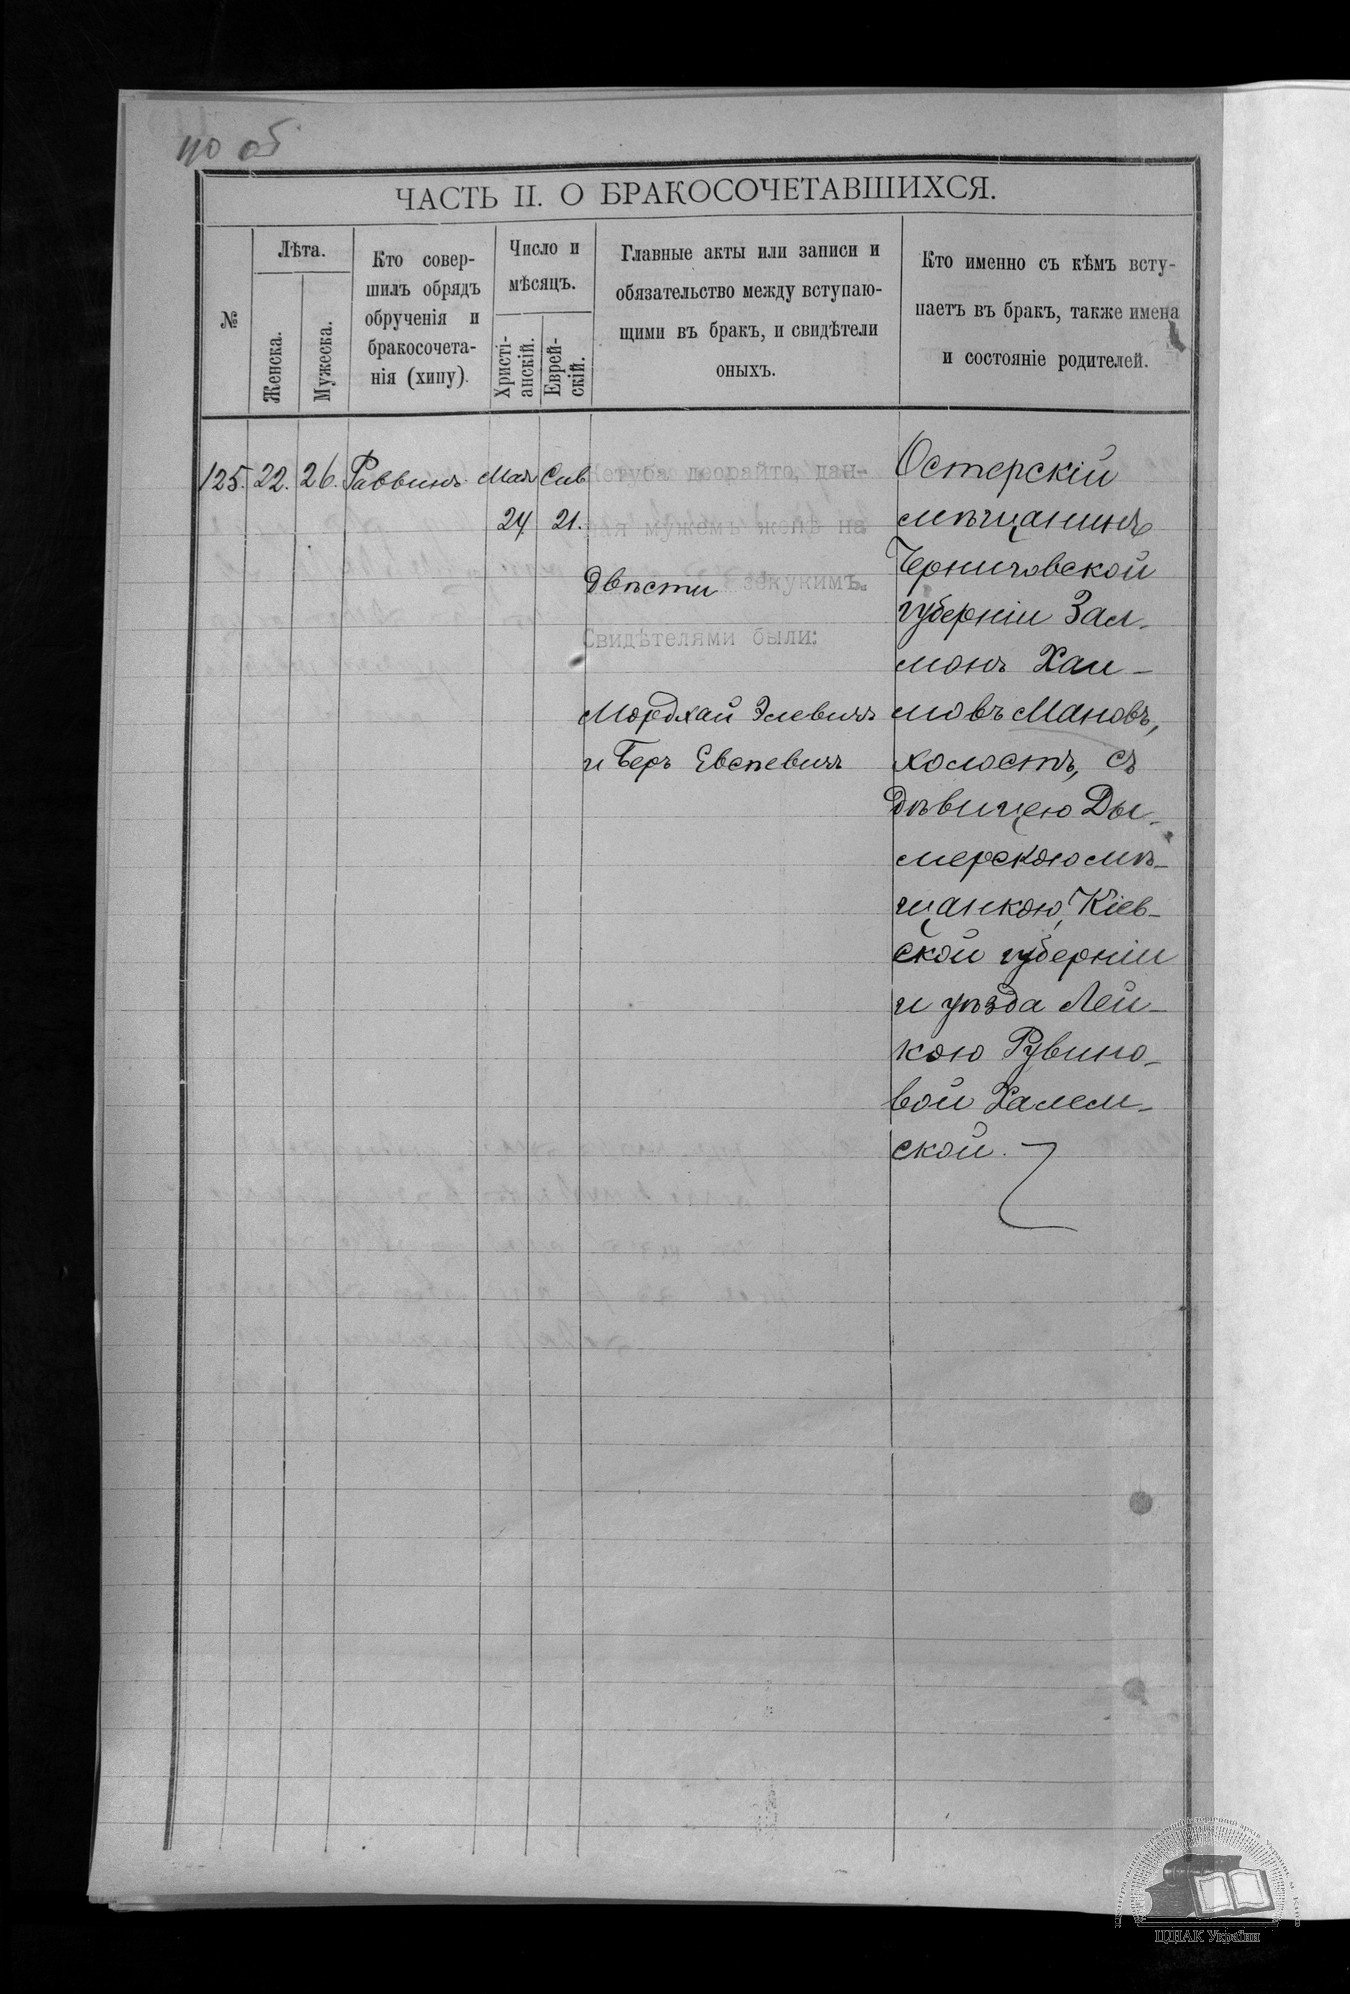 110 об
ЧАСТЬ II. О БРАКОСОЧЕТАВШИХСЯ.
№
Лѣта.
Женска.
Мужеска.
Кто совер-
шилъ обрядъ
обрученія и
бракосочета-
нія (хипу).
Число и
мѣсяцъ.
Христі-
анскій.
Еврей-
скій.
Главные акты или записи и
обязательство между вступаю-
щими въ бракъ, и свидѣтели
оныхъ.
Кто именно съ кѣмъ всту-
паетъ въ бракъ, также имена
и состояніе родителей.
125. 22. 26. Раввинъ Мая Сив
24 21.
Кетуба деорайто, дан-
ная мужемъ женѣ на
двѣсти зекукимъ.
Свидѣтелями были:
Мордхай Элевичъ
и Беръ Евсѣевичъ
Остерскій
мѣщанинъ
Черниговской
губерніи Зал-
монъ Хаи-
мовъ Мановъ,
холостъ, съ
дѣвицею Ды-
мерскою мѣ-
щанкою, Кіев-
ской губерніи
и уѣзда Лей-
кою Рувино-
вой Халем-
ской.
ЦДІАК України